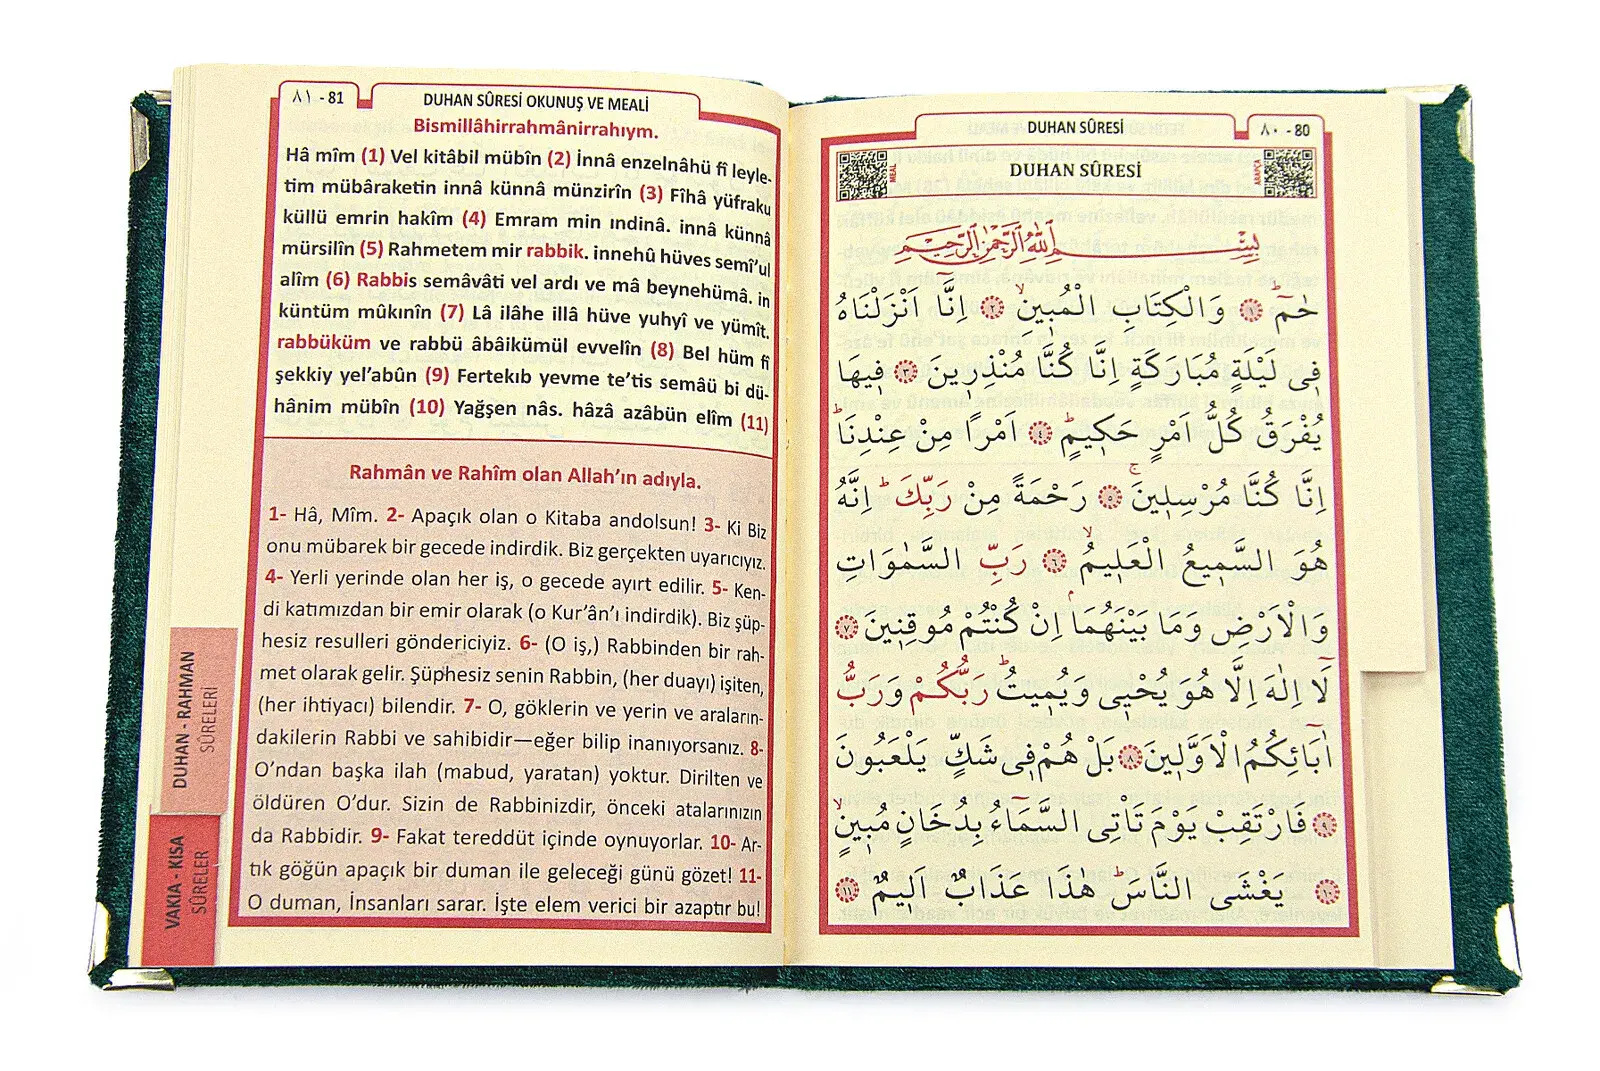 ٨١ - 81
DUHAN SÛRESİ OKUNUŞ VE MEALİ
Bismillâhirrahmânirrahıym.
Hâ mîm (1) Vel kitâbil mübîn (2) İnnâ enzelnâhü fî leyle-
tim mübâraketin innâ künnâ münzirîn (3) Fîhâ yüfraku
küllü emrin hakîm (4) Emram min ındinâ. innâ künnâ
mürsilîn (5) Rahmetem mir rabbik. innehû hüves semî’ul
alîm (6) Rabbis semâvâti vel ardı ve mâ beynehümâ. in
küntüm mûkınîn (7) Lâ ilâhe illâ hüve yuhyî ve yümît.
rabbüküm ve rabbü âbâikümül evvelîn (8) Bel hüm fî
şekkiy yel’abûn (9) Fertekıb yevme te’tis semâü bi dü-
hânim mübîn (10) Yağşen nâs. hâzâ azâbün elîm (11)
Rahmân ve Rahîm olan Allah’ın adıyla.
1- Hâ, Mîm. 2- Apaçık olan o Kitaba andolsun! 3- Ki Biz
onu mübarek bir gecede indirdik. Biz gerçekten uyarıcıyız.
4- Yerli yerinde olan her iş, o gecede ayırt edilir. 5- Ken-
di katımızdan bir emir olarak (o Kur’ân’ı indirdik). Biz şüp-
hesiz resulleri göndericiyiz. 6- (O iş,) Rabbinden bir rah-
met olarak gelir. Şüphesiz senin Rabbin, (her duayı) işiten,
(her ihtiyacı) bilendir. 7- O, göklerin ve yerin ve araların-
dakilerin Rabbi ve sahibidir—eğer bilip inanıyorsanız. 8-
O’ndan başka ilah (mabud, yaratan) yoktur. Dirilten ve
öldüren O’dur. Sizin de Rabbinizdir, önceki atalarınızın
da Rabbidir. 9- Fakat tereddüt içinde oynuyorlar. 10- Ar-
tık göğün apaçık bir duman ile geleceği günü gözet! 11-
O duman, İnsanları sarar. İşte elem verici bir azaptır bu!
DUHAN - RAHMAN
SÛRELERİ
VAKIA - KISA
SÛRELER
DUHAN SÛRESİ
٨٠ - 80
MEAL
DUHAN SÛRESİ
ARAPÇA
بِسْمِ اللّٰهِ الرَّحْمٰنِ الرَّحِيمِ
حٰمٓ ۚ ﴿١﴾ وَالْكِتَابِ الْمُبِينِ ۙ ﴿٢﴾ اِنَّٓا اَنْزَلْنَاهُ
فِي لَيْلَةٍ مُبَارَكَةٍ اِنَّا كُنَّا مُنْذِرِينَ ﴿٣﴾ فِيهَا
يُفْرَقُ كُلُّ اَمْرٍ حَكِيمٍ ۙ ﴿٤﴾ اَمْرًا مِنْ عِنْدِنَا ؕ
اِنَّا كُنَّا مُرْسِلِينَ ۚ ﴿٥﴾ رَحْمَةً مِنْ رَبِّكَ ؕ اِنَّهُ
هُوَ السَّمِيعُ الْعَلِيمُ ۙ ﴿٦﴾ رَبِّ السَّمٰوَاتِ
وَالْاَرْضِ وَمَا بَيْنَهُمَا ۢ اِنْ كُنْتُمْ مُوقِنِينَ ﴿٧﴾
لَٓا اِلٰهَ اِلَّا هُوَ يُحْيِي وَيُمِيتُ ؕ رَبُّكُمْ وَرَبُّ
اٰبَٓائِكُمُ الْاَوَّلِينَ ﴿٨﴾ بَلْ هُمْ فِي شَكٍّ يَلْعَبُونَ
﴿٩﴾ فَارْتَقِبْ يَوْمَ تَأْتِي السَّمَٓاءُ بِدُخَانٍ مُبِينٍ ۙ
﴿١٠﴾ يَغْشَى النَّاسَ ؕ هٰذَا عَذَابٌ اَلِيمٌ ﴿١١﴾